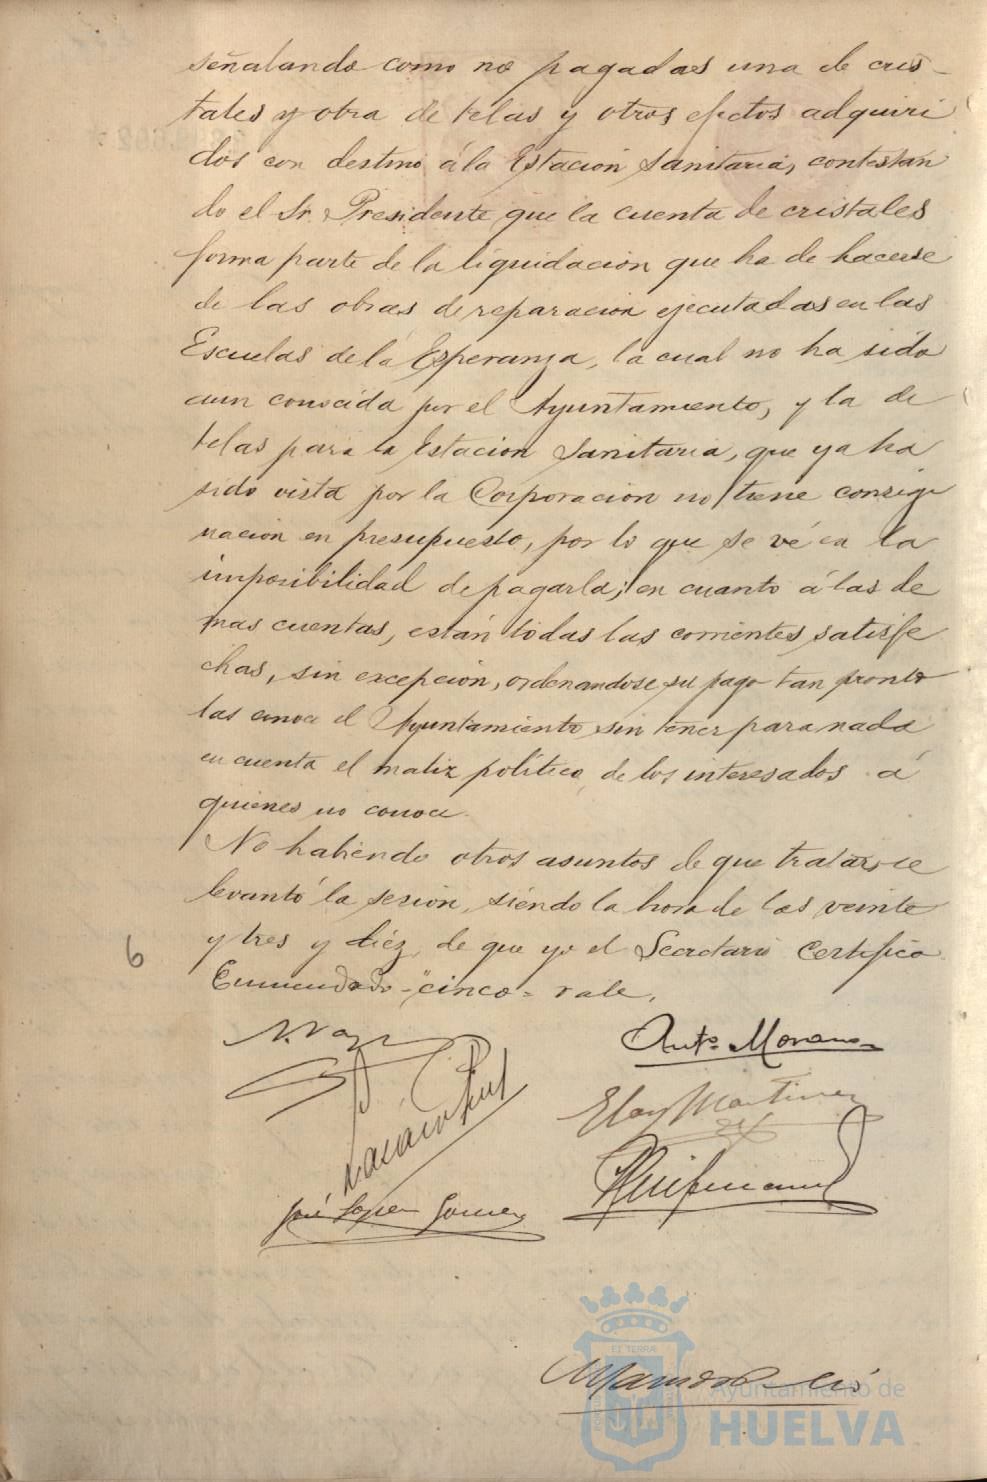 señalando como no pagadas una de cris-
tales y otra de telas y otros efectos adquiri
dos con destino á la Estación Sanitaria, contestan
do el Sr. Presidente que la cuenta de cristales
forma parte de la liquidación que ha de hacerse
de las obras de reparación ejecutadas en las
Escuelas de la Esperanza, la cual no ha sido
aun conocida por el Ayuntamiento, y la de
telas para la Estación Sanitaria, que ya ha
sido vista por la Corporación no tiene consig
nación en presupuesto, por lo que se vé en la
imposibilidad de pagarla; en cuanto á las de
mas cuentas, están todas las corrientes satisfe
chas, sin excepción, ordenandose su pago tan pronto
las conoce el Ayuntamiento sin tener para nada
en cuenta el matiz político de los interesados á
quienes no conoce.
No habiendo otros asuntos de que tratar, se
levantó la sesión, siendo la hora de las veinte
y tres y diéz, de que yo el Secretario certifico.
6
Enmendado-"cinco"= vale.
Antº Moreno
Eloy Martinez
José López Gómez
ET TERRÆ
Ayuntamiento de
HUELVA